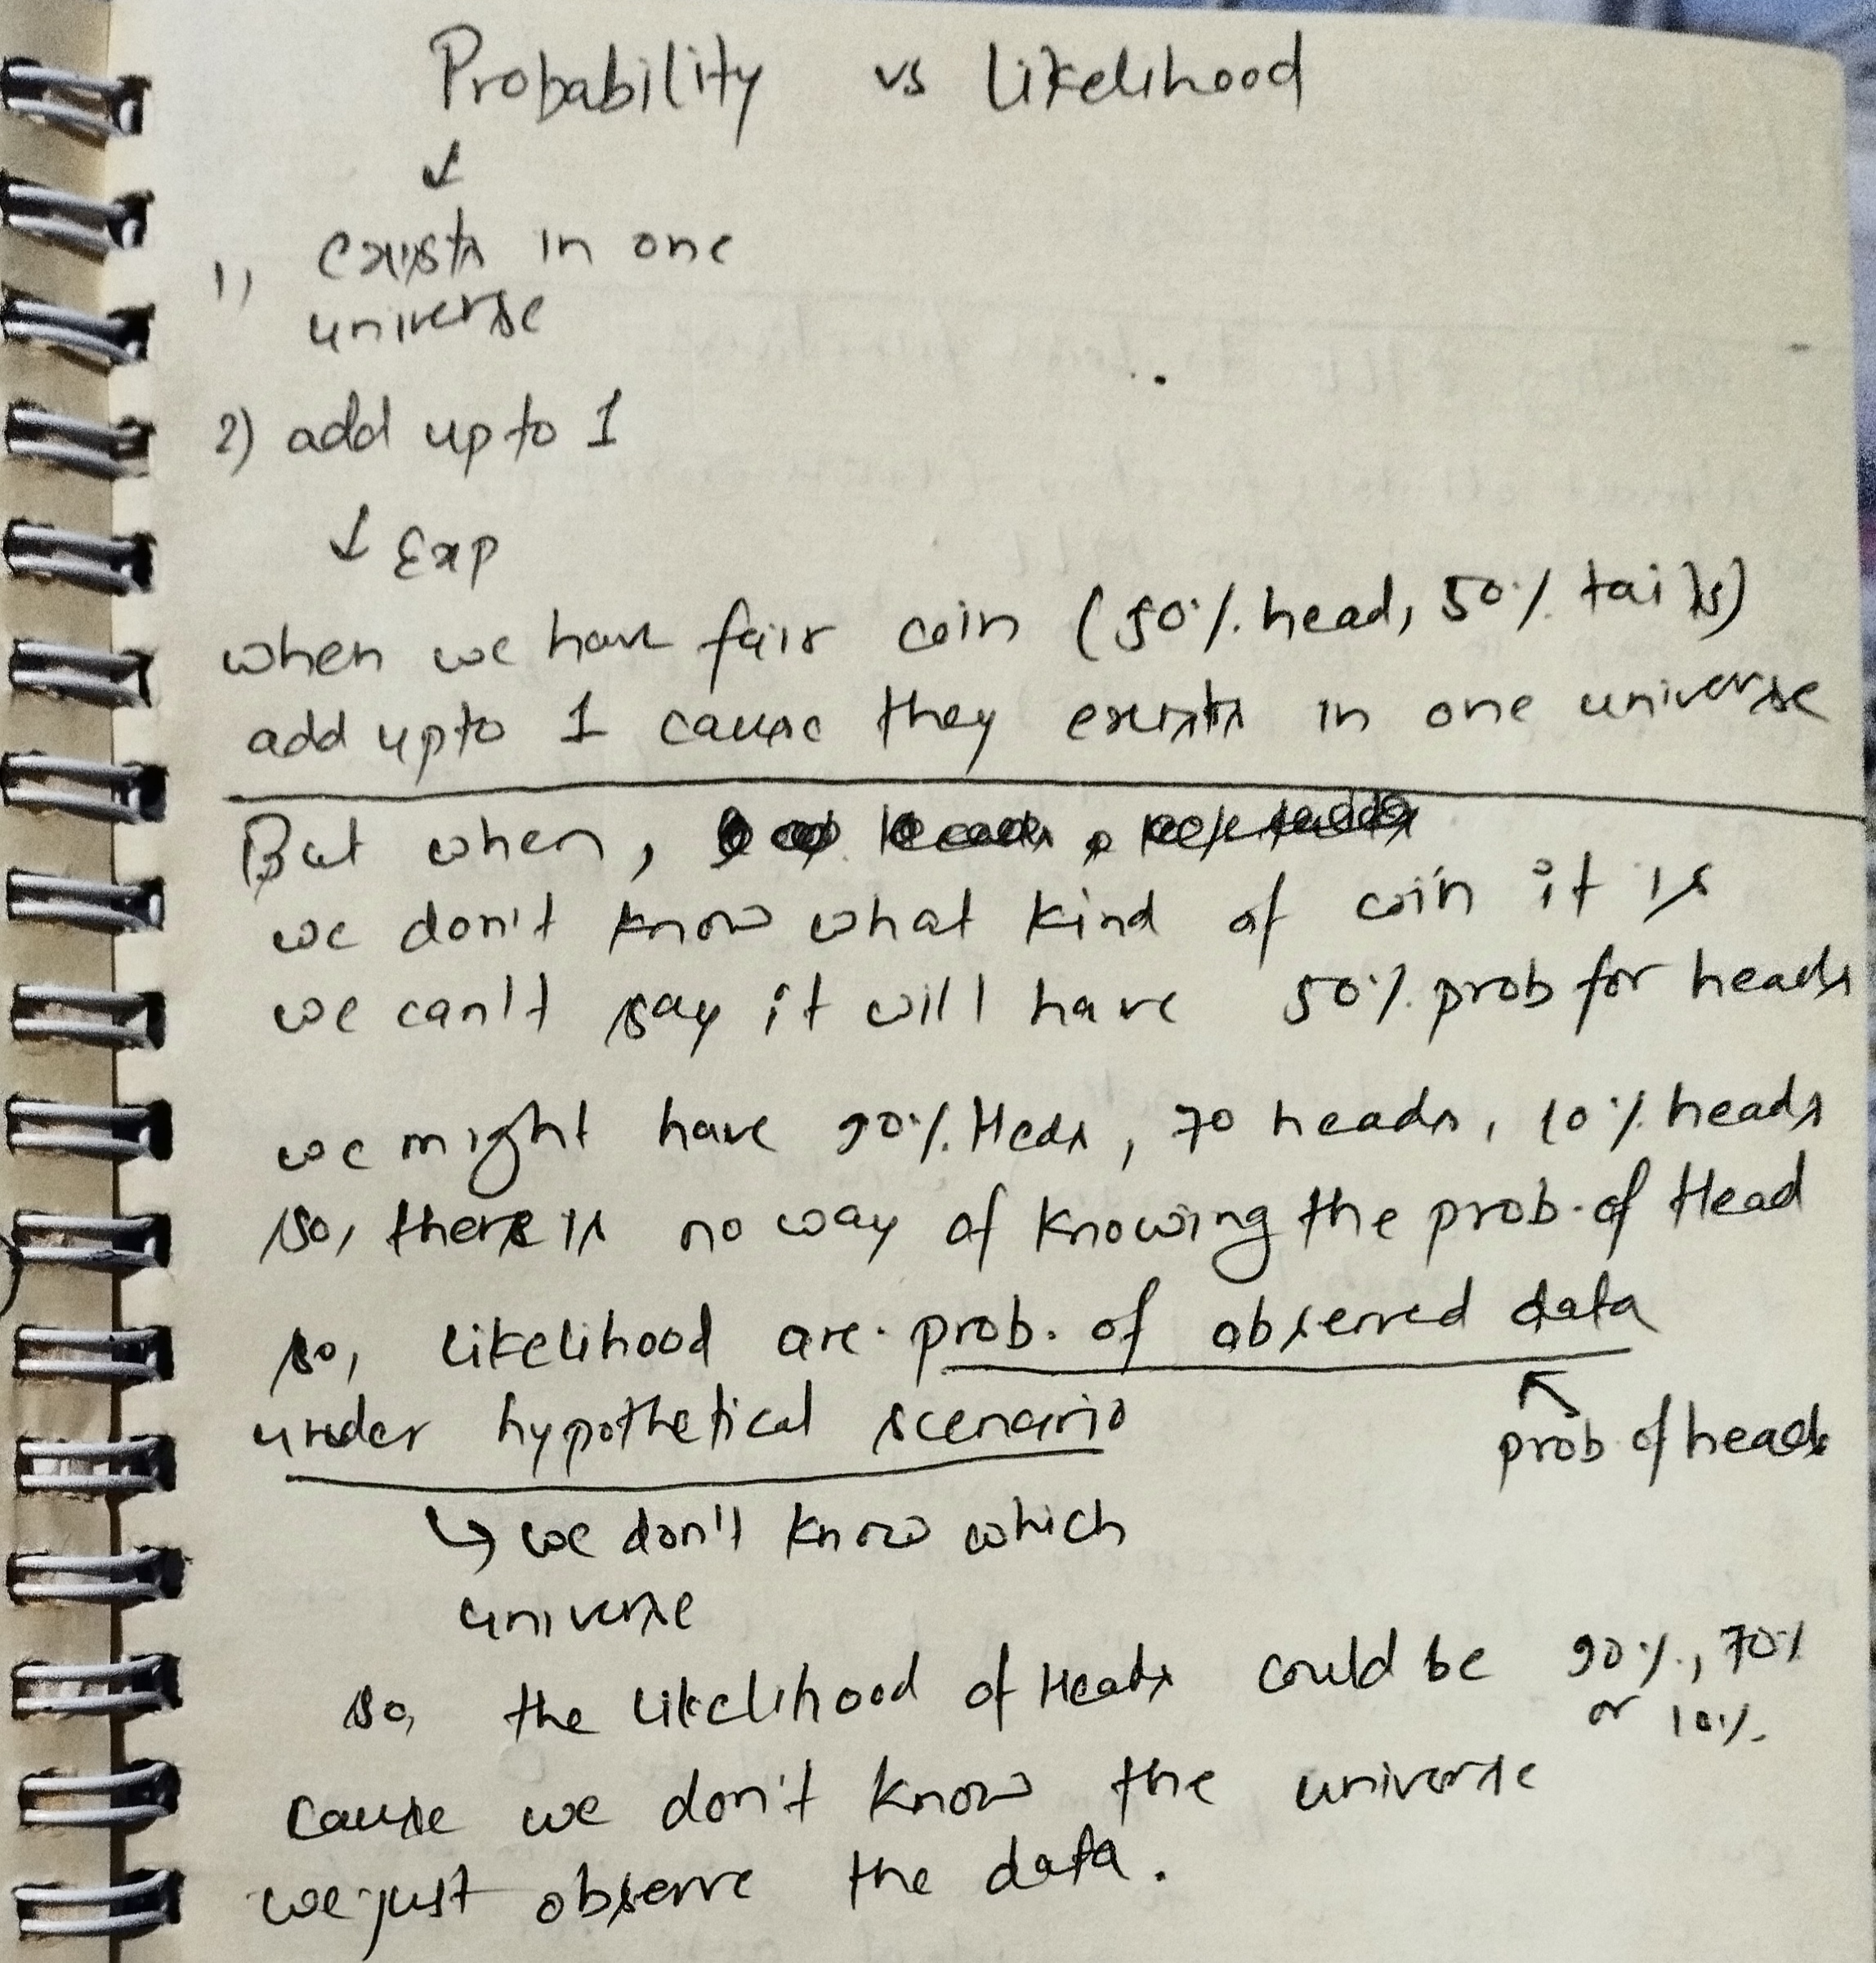 Probability vs likelihood
1) exists in one
universe
2) add upto 1
↓ Exp
when we have fair coin (50% head, 50% tails)
add upto 1 cause they exists in one universe
But when,
we don't know what kind of coin it is
we can't say it will have 50% prob for heads
we might have 90% Heds, 70 heads, 10% heads
so, there is no way of knowing the prob. of Head
so, likelihood are prob. of observed data
under hypothetical scenario
prob of heads
↳ we don't know which
universe
so, the likelihood of Heads could be 90%, 70%
or 10%.
cause we don't know the universe
we just observe the data.